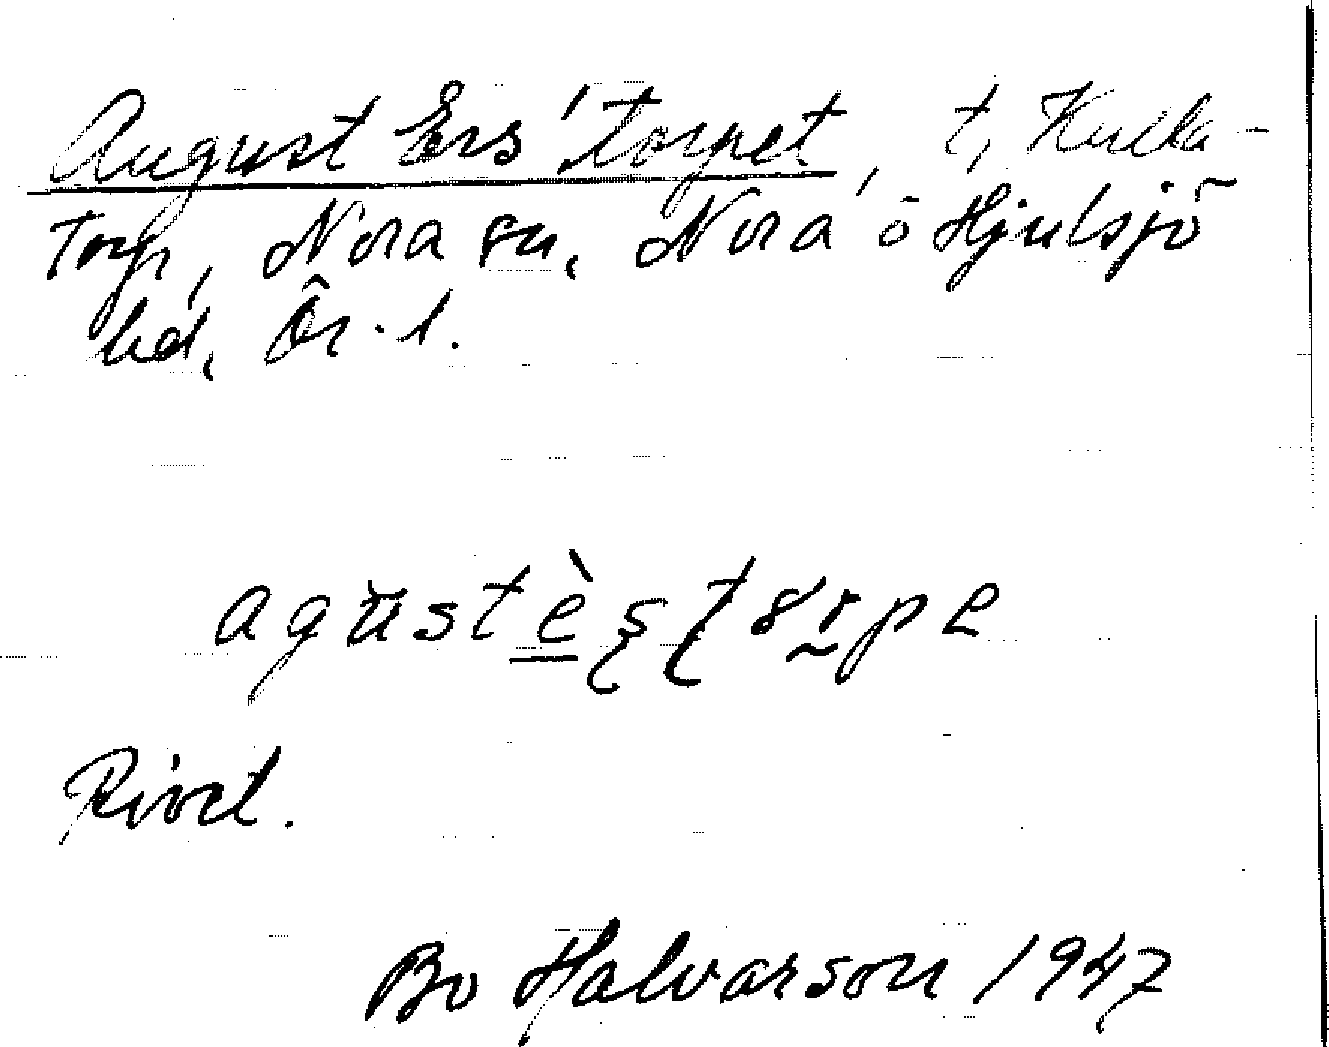 August Ers'torpet, t, Kulla-
torp, Nora sn, Nora o Hjulsjö
bd, Ör.l.
agustèstorpe
Rivet.
Bo Halvarson 1947